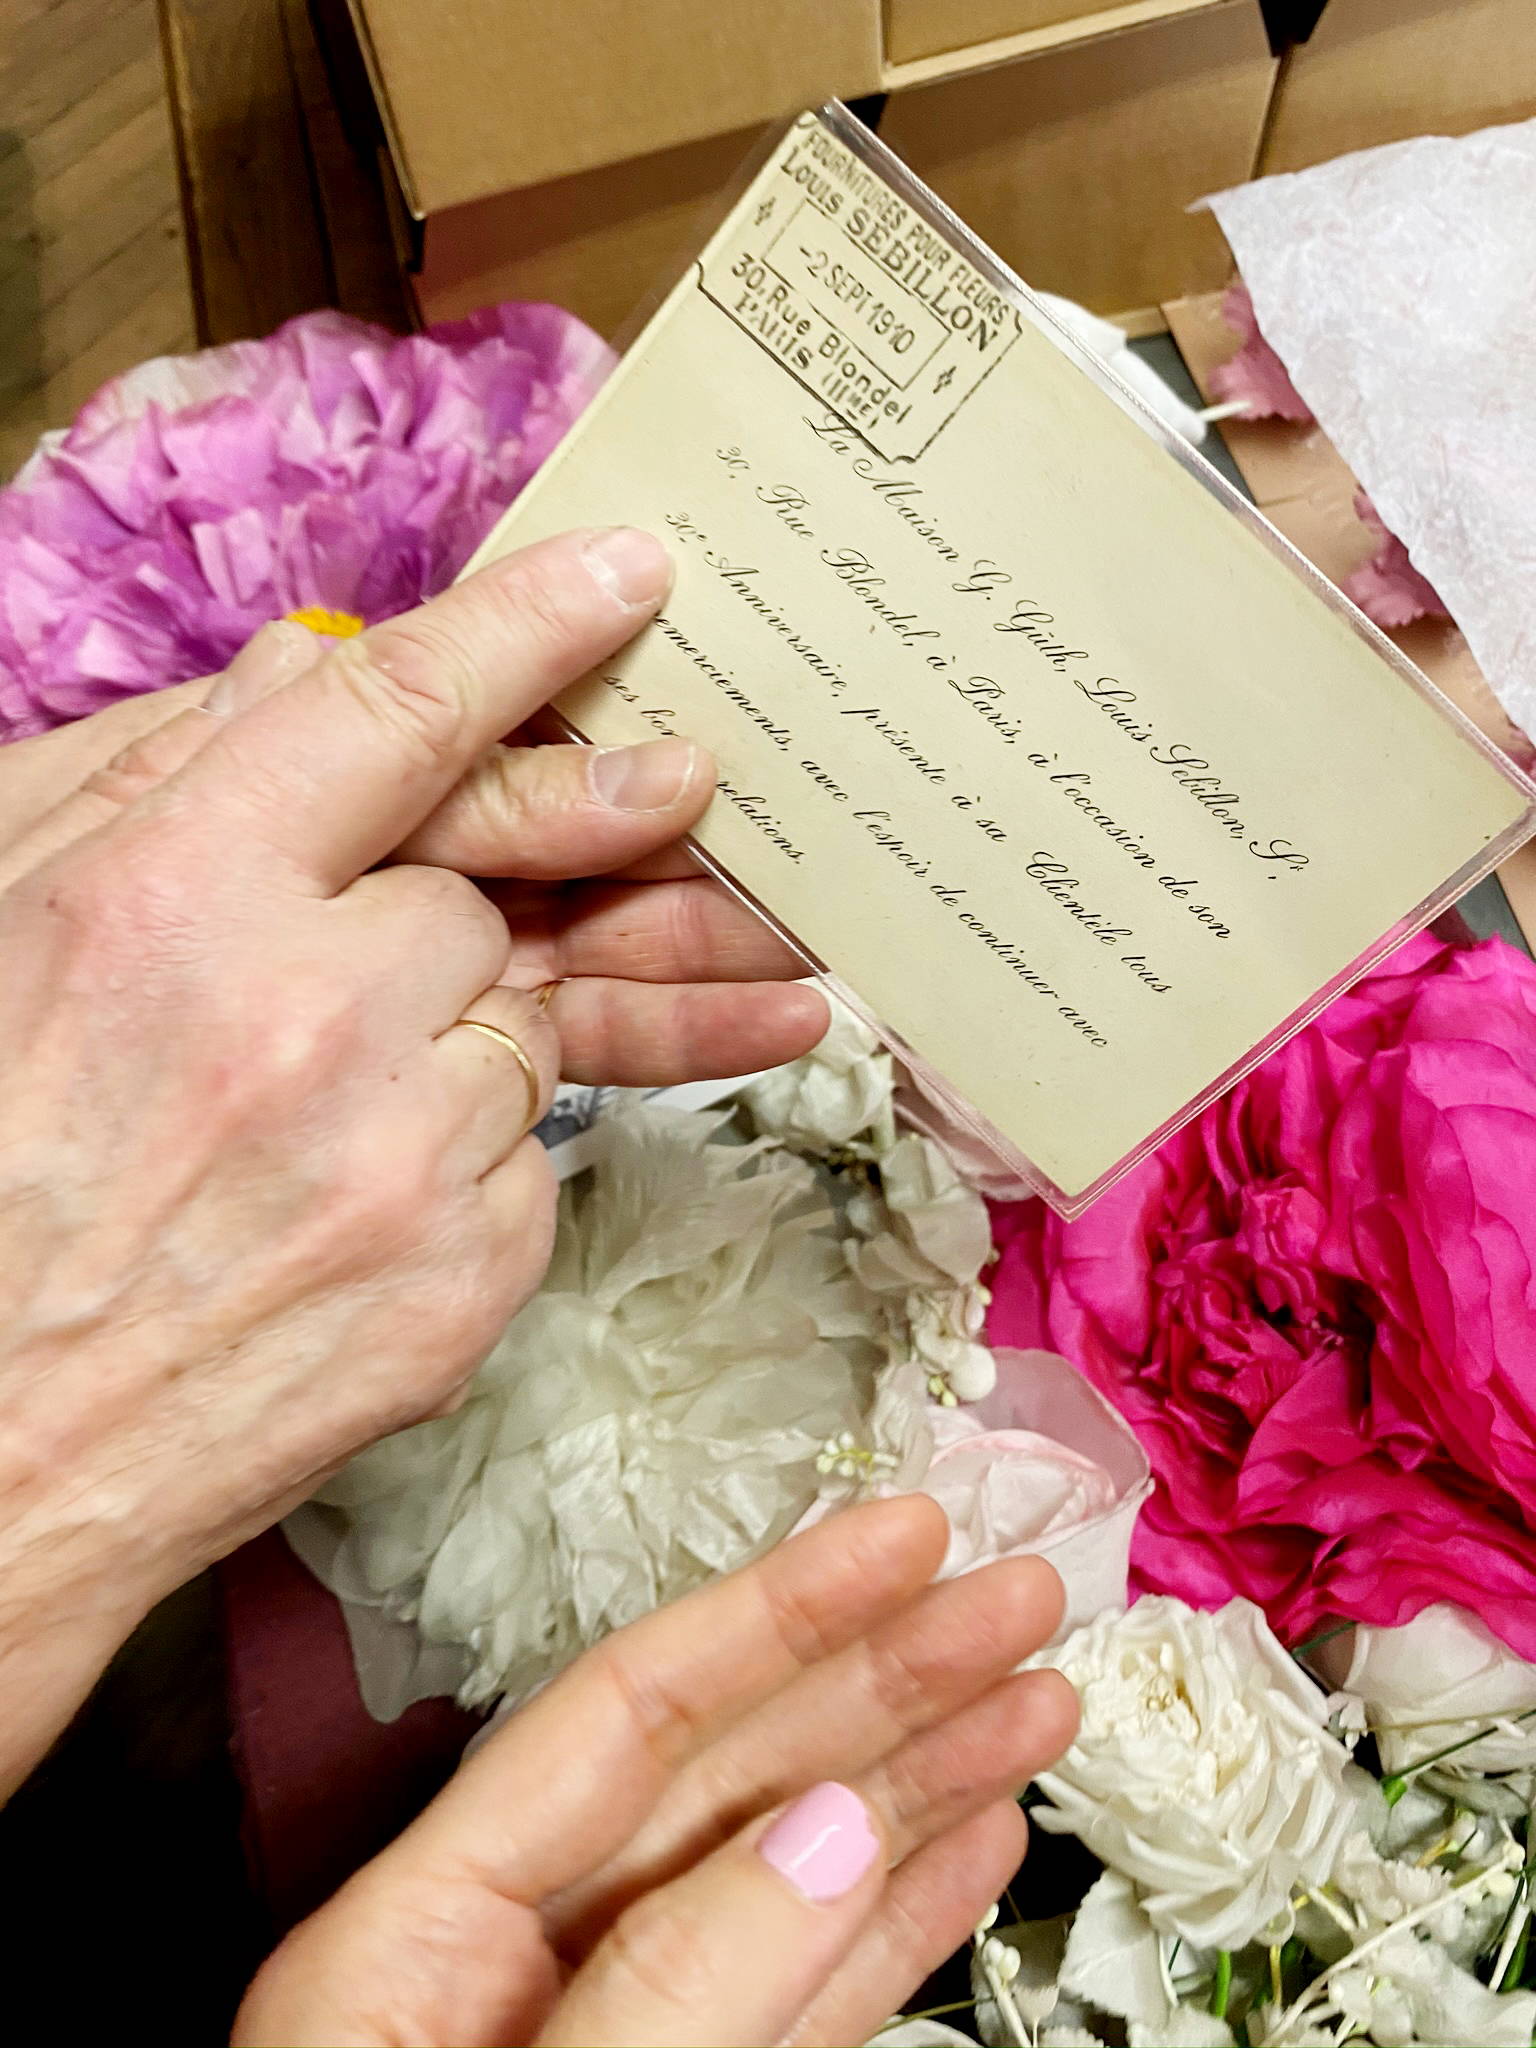 FOURNITURES POUR FLEURS
LOUIS SEBILLON
-2 SEPT 1910
30, Rue Blondel
PARIS (IIME)
La Maison G. Güth, Louis Sebillon, Sr.
30, Rue Blondel, à Paris, à l'occasion de son
30e Anniversaire, présente à sa Clientèle tous
avec l'espoir de continuer avec
ses relations.